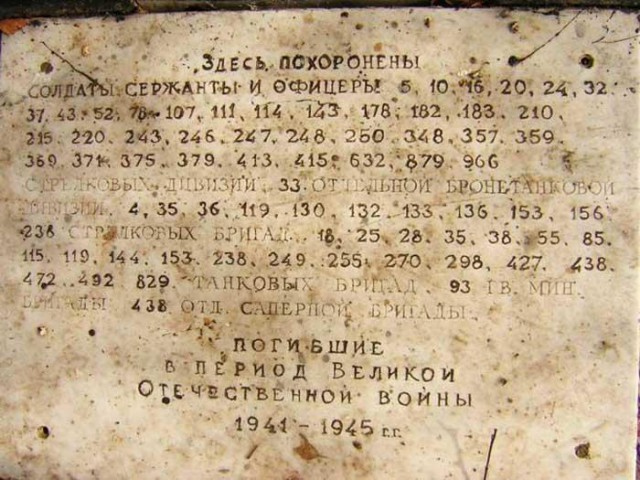 Здесь похоронены
солдаты, сержанты и офицеры 5, 10, 16, 20, 24, 32.
37, 43, 52, 78, 107, 111, 114, 143, 178, 182, 183, 210,
215. 220. 243, 246, 247, 248, 250 348, 357. 359.
369. 371. 375. 379. 413. 415. 632, 879. 966
стрелковых дивизий, 33 отдельной бронетанковой
дивизии. 4, 35, 36, 119, 130, 132, 133, 136, 153, 156
236 стрелковых бригад. 18, 25, 28. 35. 38, 55, 85.
115, 119, 144, 153. 238, 249, 255, 270, 298, 427, 438.
472..492 829. танковых бригад. 93 гв. мин.
бригады 438 отд. саперной бригады.
погибшие
в период Великой
Отечественной войны
1941-1945 г.г.